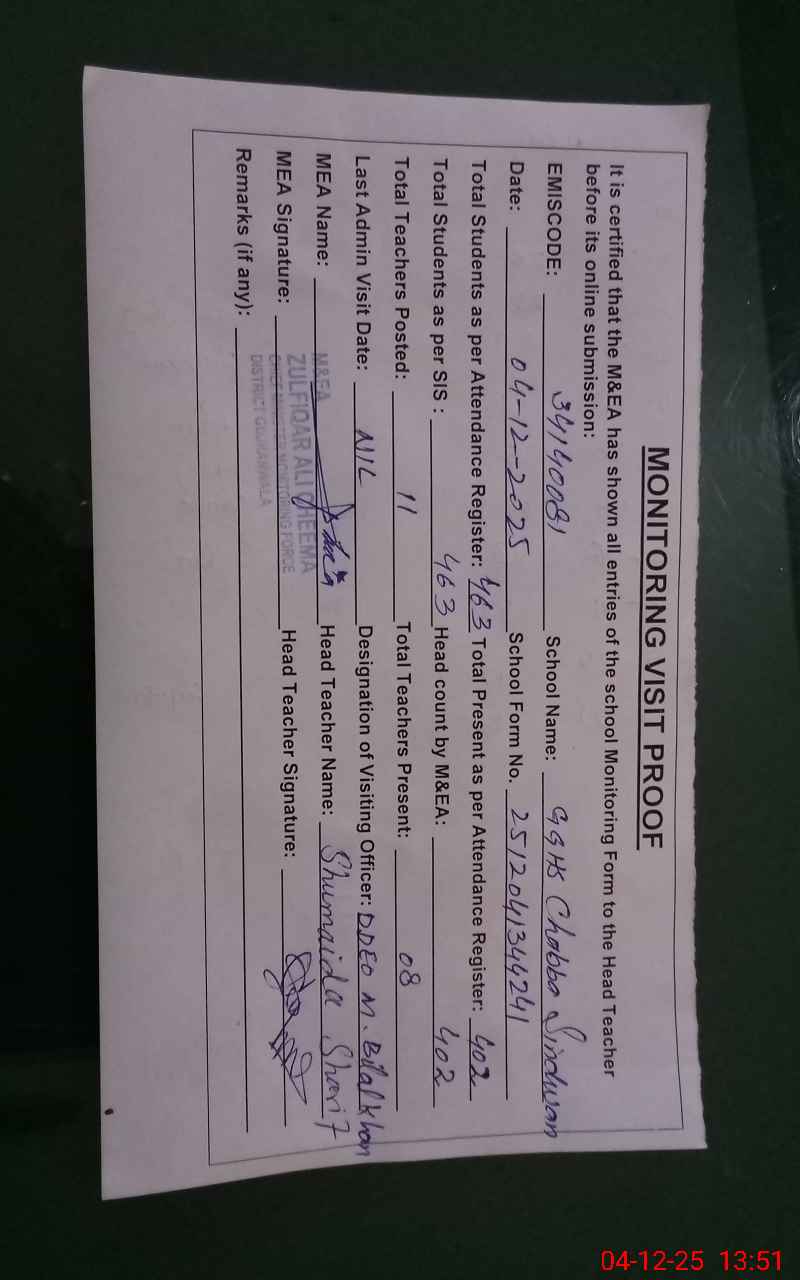 MONITORING VISIT PROOF
It is certified that the M&EA has shown all entries of the school Monitoring Form to the Head Teacher
before its online submission:
EMISCODE: 34140081 School Name: GGHS Chabba Sindwan
Date: 04-12-2025 School Form No. 251204134424 1
Total Students as per Attendance Register: 463 Total Present as per Attendance Register: 402
Total Students as per SIS : 463 Head count by M&EA: 402
Total Teachers Posted: 11 Total Teachers Present: 08
Last Admin Visit Date: NIL Designation of Visiting Officer: D.DEO M. Bilal Khan
MEA Name: Head Teacher Name: Shumaida Sharif
MEA Signature: Head Teacher Signature:
M&EA
ZULFIQAR ALI CHEEMA
CHIEF MINISTER MONITORING FORCE
DISTRICT GUJRANWALA
Remarks (if any):
04-12-25 13:51